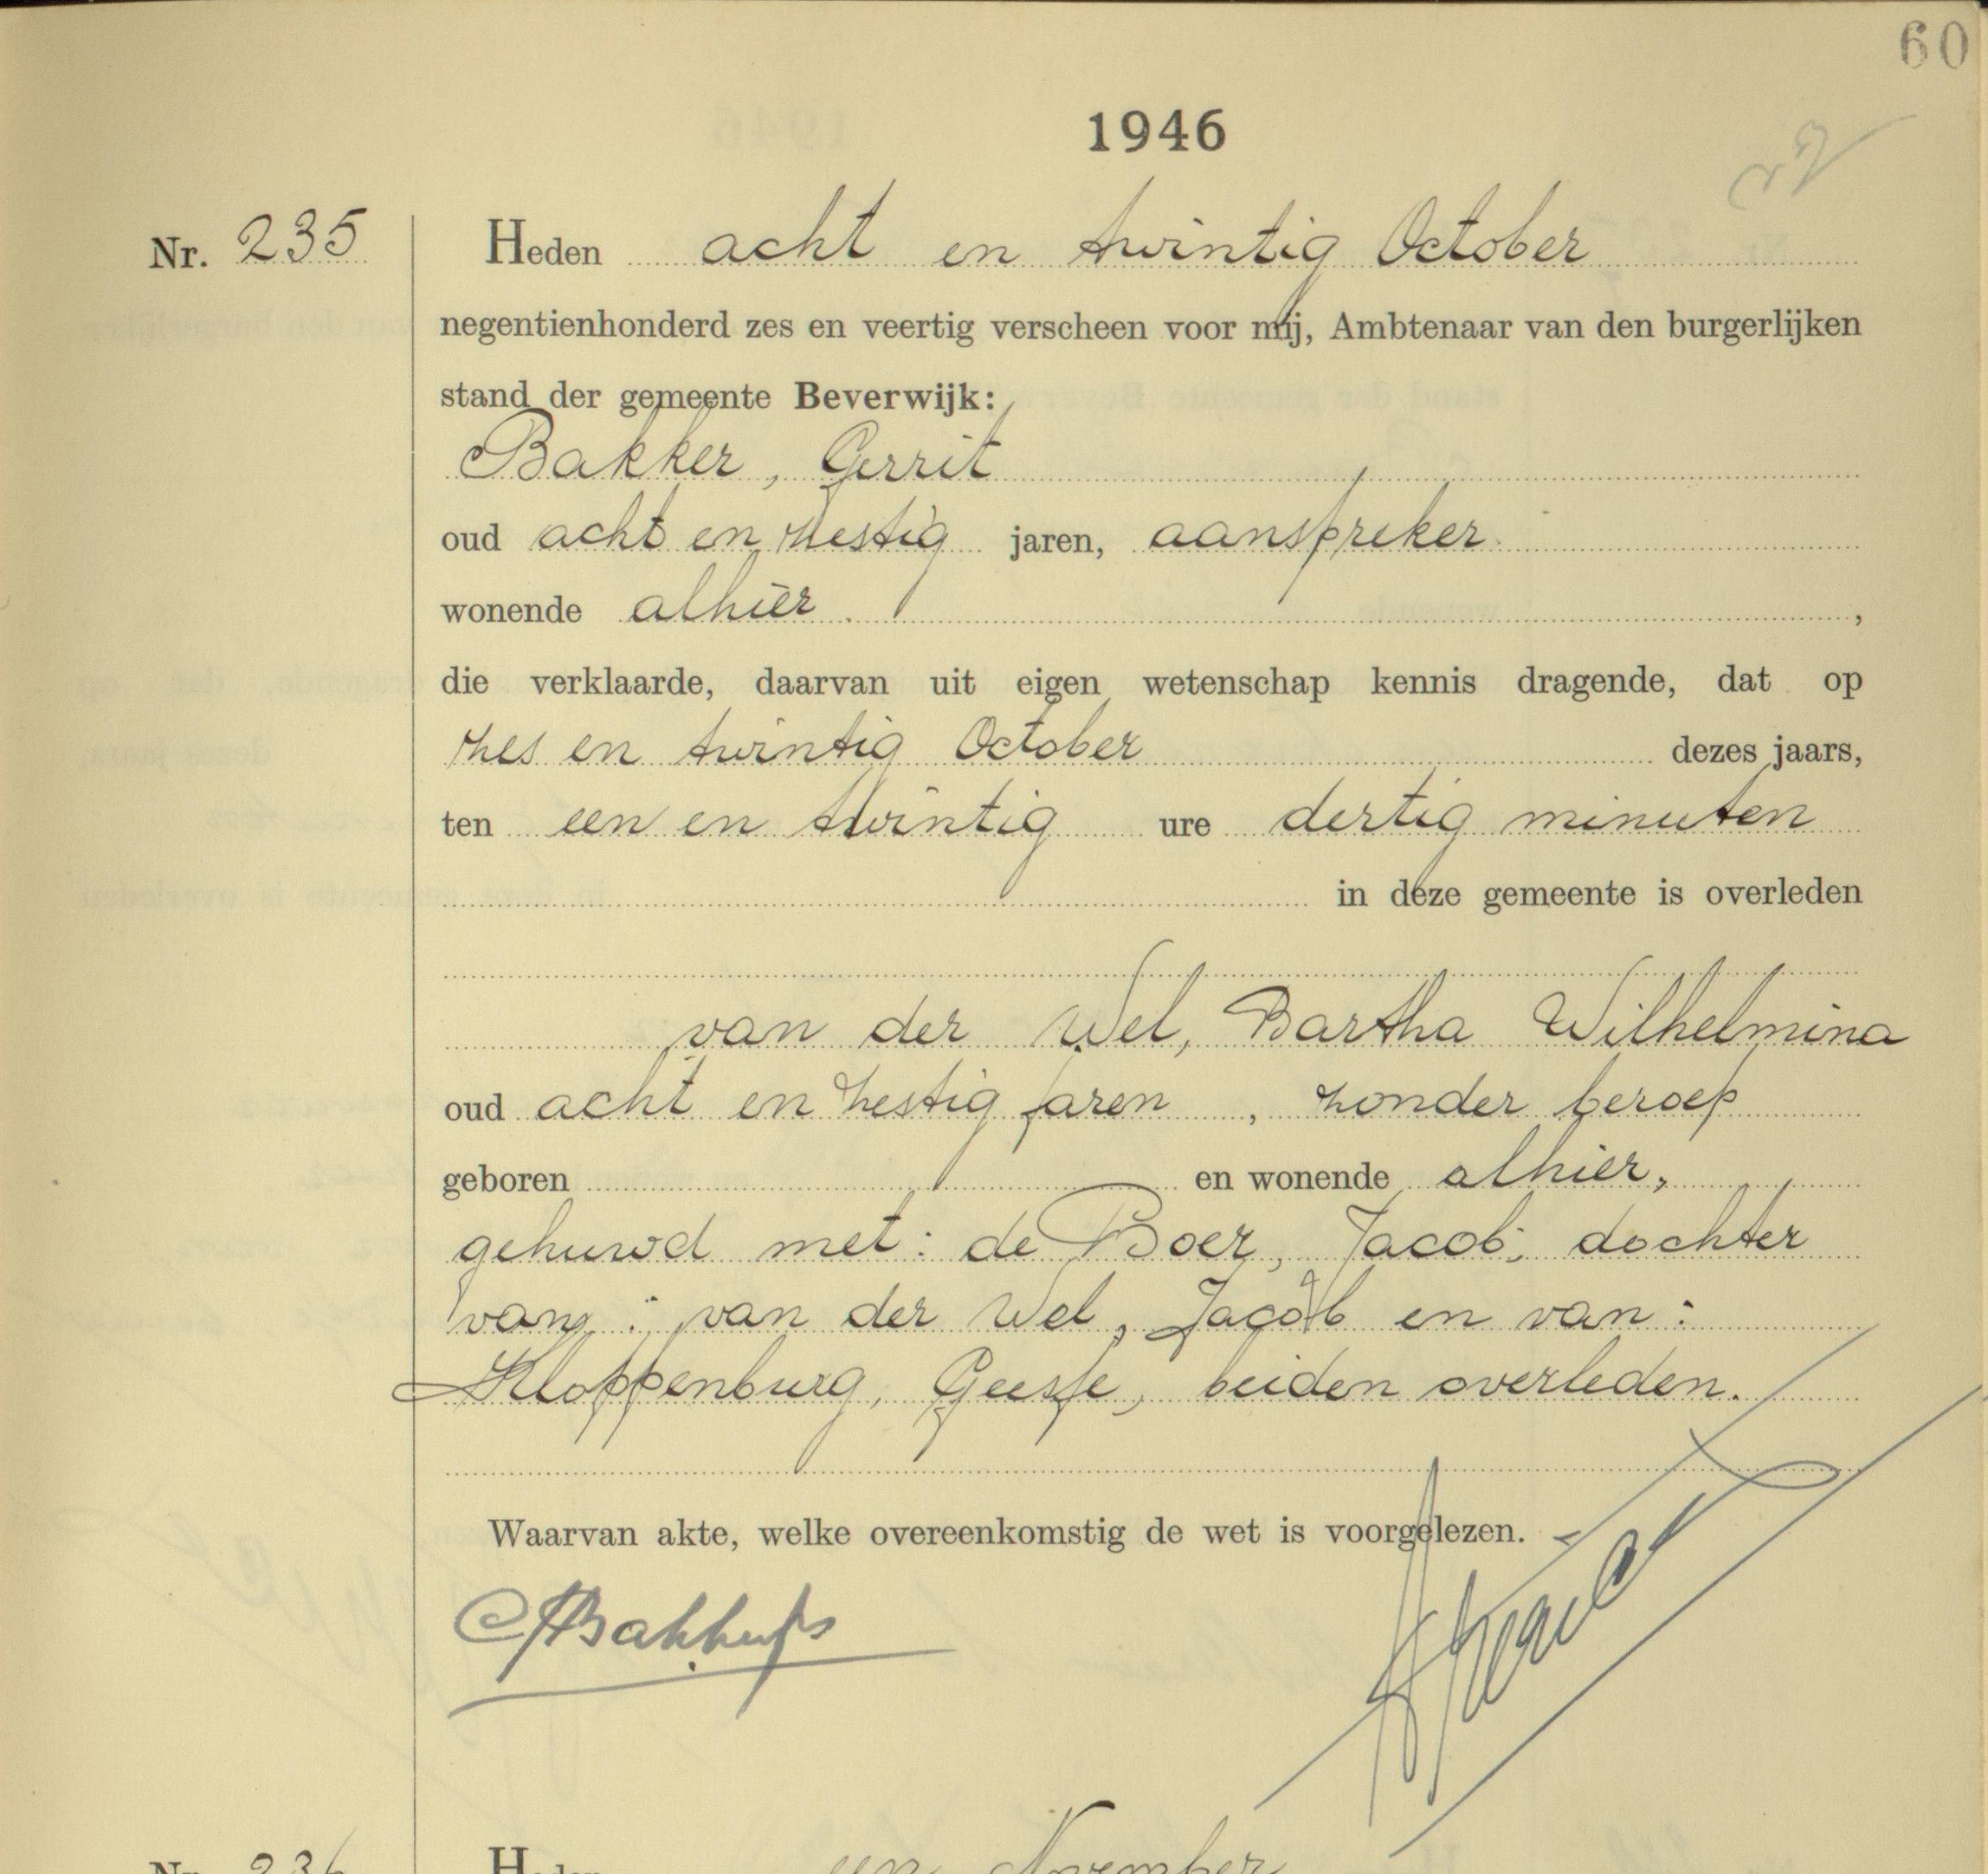 60
1946
Nr. 235
Heden acht en twintig October
negentienhonderd zes en veertig verscheen voor mij, Ambtenaar van den burgerlijken
stand der gemeente Beverwijk:
Bakker, Gerrit
oud acht en zestig jaren, aanspreker
wonende alhier ,
die verklaarde, daarvan uit eigen wetenschap kennis dragende, dat op
zes en twintig October dezes jaars,
ten een en twintig ure dertig minuten
in deze gemeente is overleden
van der Wel, Bartha Wilhelmina
oud acht en zestig jaren , zonder beroep
geboren en wonende alhier,
gehuwd met: de Boer, Jacob; dochter
van : van der Wel, Jacob en van :
Kloppenburg, Geesje, beiden overleden.
Waarvan akte, welke overeenkomstig de wet is voorgelezen.
Nr. 236
Heden een November